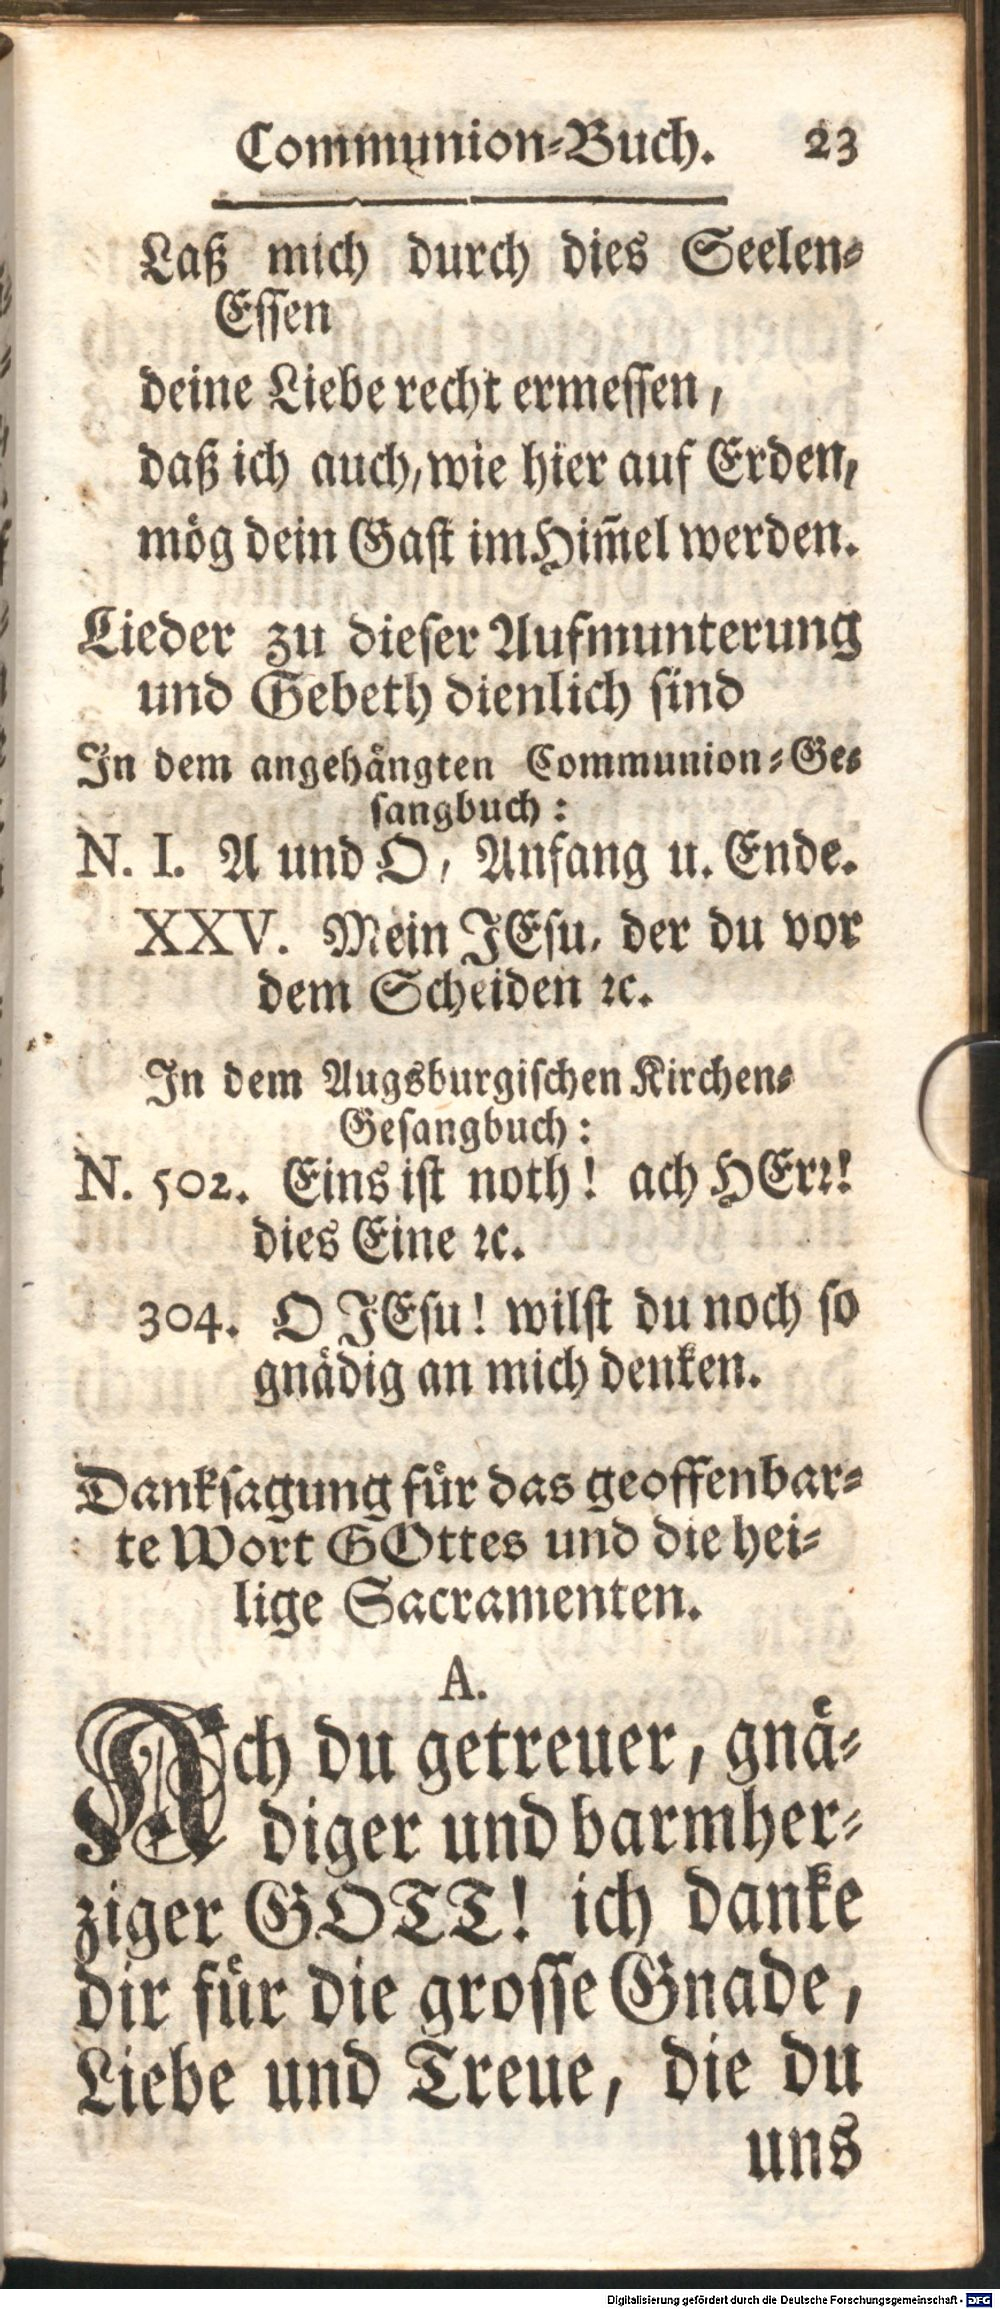 Communion-Buch. 23
Laß mich durch dies Seelen-
Essen
deine Liebe recht ermessen,
daß ich auch, wie hier auf Erden,
mög dein Gast im Him̃el werden.
Lieder zu dieser Aufmunterung
und Gebeth dienlich sind
In dem angehängten Communion-Ge-
sangbuch:
N. I. A und O, Anfang u. Ende.
XXV. Mein JEsu, der du vor
dem Scheiden ꝛc.
In dem Augsburgischen Kirchen-
Gesangbuch:
N. 502. Eins ist noth! ach HErꝛ!
dies Eine ꝛc.
304. O JEsu! wilst du noch so
gnädig an mich denken.
Danksagung für das geoffenbar-
te Wort GOttes und die hei-
lige Sacramenten.
A.
Ach du getreuer, gnä-
diger und barmher-
ziger GOTT! ich danke
dir für die grosse Gnade,
Liebe und Treue, die du
uns
Digitalisierung gefördert durch die Deutsche Forschungsgemeinschaft - DFG